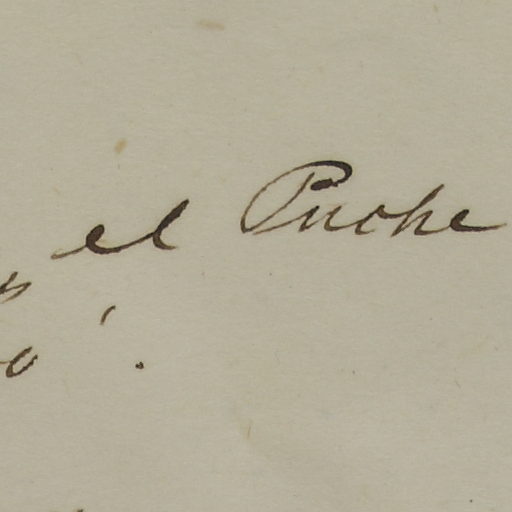 el Puche